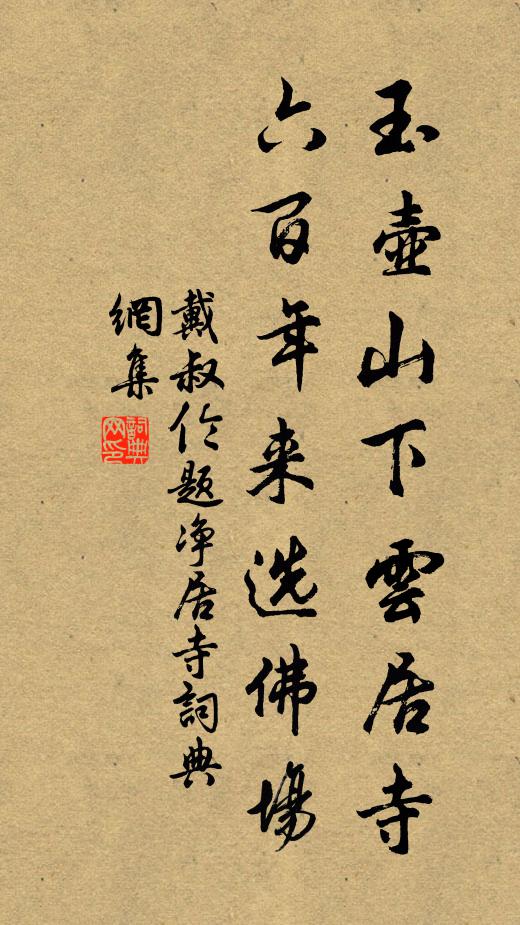 玉壺山下雲居寺
六百年来选佛場
戴叔伦题净居寺詞典
網集
詞典
网印